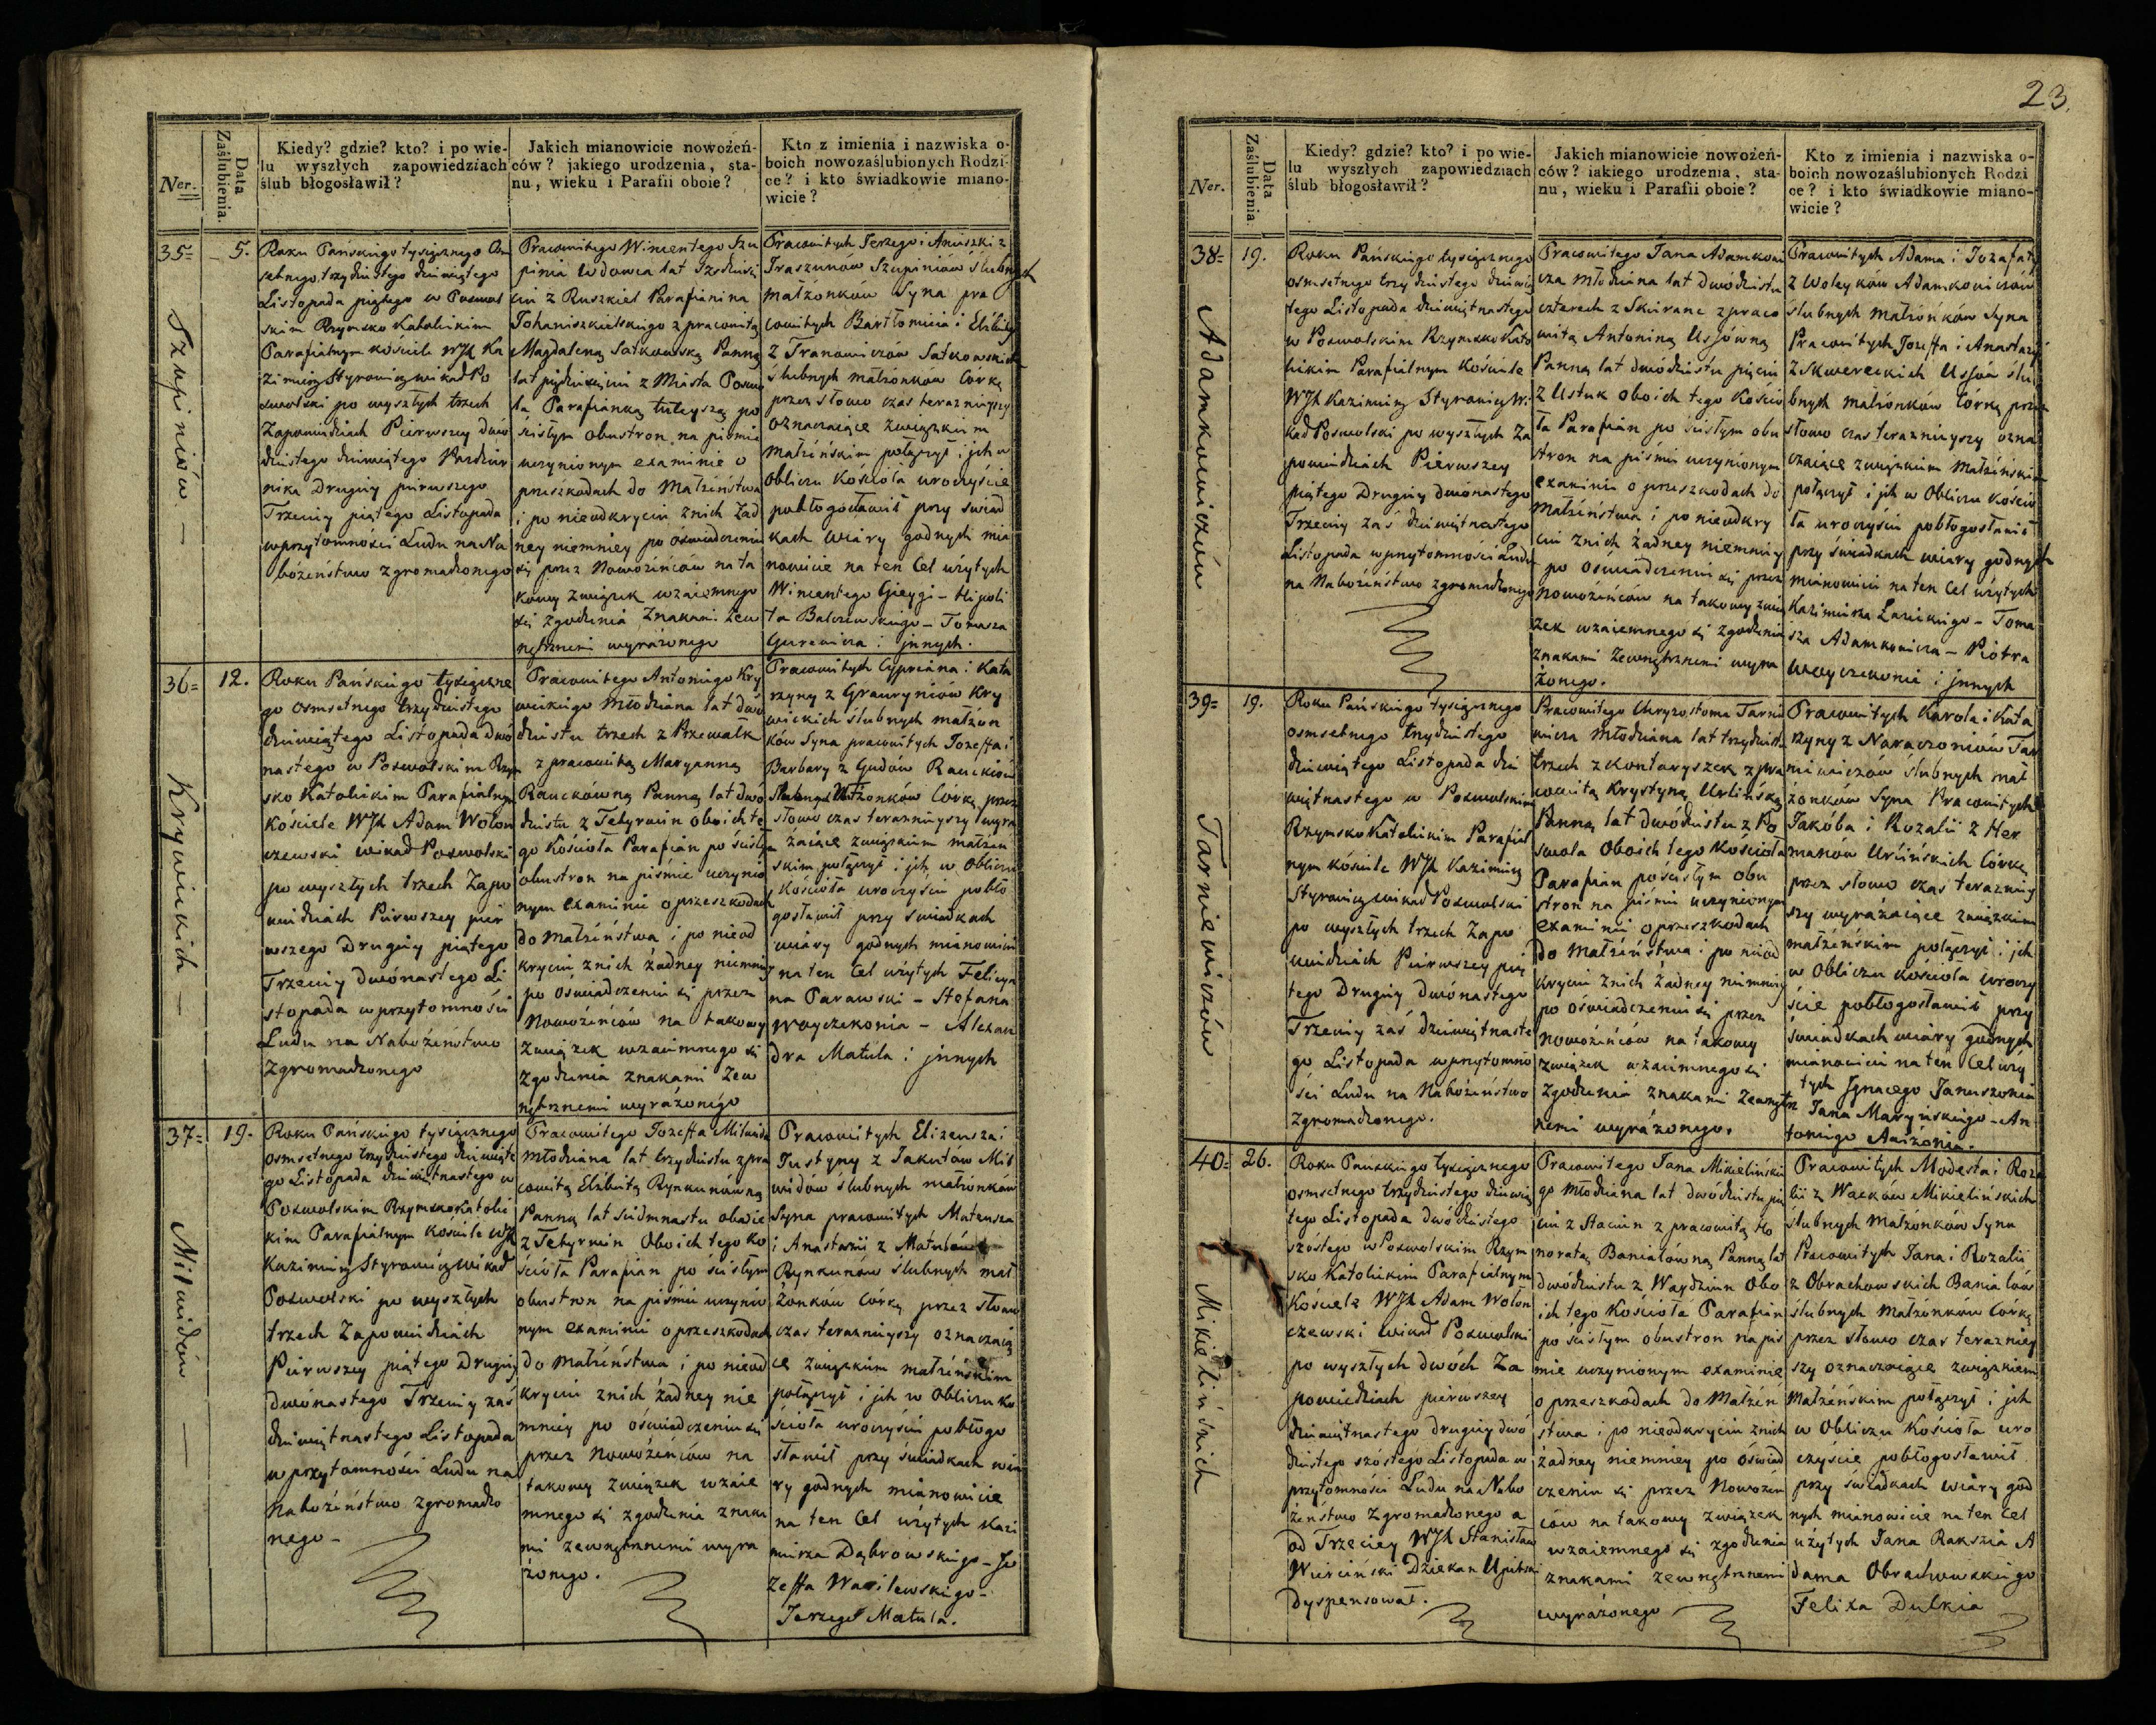 23.
Ner.
Data Zaślubienia.
Kiedy? gdzie? kto? i po wie-
lu wyszłych zapowiedziach
ślub błogosławił?
Jakich mianowicie nowożeń-
ców? jakiego urodzenia, sta-
nu, wieku i Parafii oboie?
Kto z imienia i nazwiska o-
boich nowozaślubionych Rodzi-
ce? i kto świadkowie miano-
wicie?
35=
5.
Szupiniów.
Roku Pańskiego tysiącznego Ośm
setnego trzydziestego dziewiątego
Listopada piątego w Poswol
skim Rzymsko Katolickim
Parafialnym kościele WJX Ka
zimierz Styrowicz wikad Po
swolski po wyszłych trzech
Zapowiedziach Pierwszey dwó
dziestego dziewiątego Paździer
nika Drugiey pierwszego
Trzeciey piątego Listopada
w przytomności Ludu na Na
bożeństwo zgromadzonego
Pracowitego Wincentego Szu
pinia Wdowca lat
z Ruszkiel Parafianina
Johaniszkielskiego z pracowitą
Magdaleną Satkowską Panną
lat z Miasta Poswo
la Parafianką tuteyszą po
ścisłym obustron na piśmie
uczynionym examinie o
przeszkodach do Małżeństwa
i po nieodkryciu znich żad
ney niemniey po oświadczeniu
się przez Nowożeńców na ta
kowy związek wzaiemnego
się zgodzenia Znakami Zew
nętrznemi wyrażonego
Pracowitych Jerzego i Anuszki z
Traszunów Szupiniów Ślubnych
małżonków Syna pra
cowitych Bartłomieia i Elżbiety
z Tranowiczów Satkowskich
ślubnych małżonków Córkę
przez słowo czas teraznieyszy
oznaczaiące związkiem
Małżeńskim połączył i ich w
Obliczu Kościoła uroczyście
pobłogosławił przy świad
kach wiary godnych mia
nowicie na ten Cel użytych
Wincentego Gieygi - Hipoli
ta Balczewskiego - Tomasza
Gurewicza i innych.
36=
12.
Krywickich
Roku Pańskiego tysiączne
go osmsetnego trzydziestego
dziewiątego Listopada dwó
nastego w Poswolskim Rzym
sko Katolickim Parafialnym
Kościele WJX Adam Wołon
czewski wikad Poswolski
po wyszłych trzech Zapo
wiedziach Pierwszey pier
wszego Drugiey piątego
Trzeciey dwónastego Li
stopada w przytomności
Ludu na Nabożeństwo
Zgromadzonego
Pracowitego Antoniego Kry
wickiego Młodziana lat dwó
dziestu trzech z Przewalk
z pracowitą Maryanną
Rauckówną Panną lat dwó
dziestu z Tetyrwin oboich te
go Kościoła Parafian po ścisłym
obustron na piśmie uczynio
nym examinie o przeszkodach
do małżeństwa i po nieod
kryciu znich żadney niemniey
po oświadczeniu się przez
Nowożeńców na takowy
Związek wzaiemnego się
Zgodzenia znakami Zew
nętrznemi wyrażonego
Pracowitych Cypriana i Kata
rzyny z Graurynów Kry
wickich ślubnych małżon
ków Syna pracowitych Jozeffa i
Barbary z Gudów Rauckiów
Ślubnych Małżonków Córkę przez
słowo czas teraznieyszy wyra
żaiące związkiem małżeń
skim połączył i ich w Obliczu
Kościoła uroczyście pobło
gosławił przy świadkach
wiary godnych mianowicie
na ten Cel użytych Felicya
na Parawski - Stefana
Woyczekonia - Alexan
dra Matula i innych
37=
19.
Milwidów
Roku Pańskiego tysiącznego
osmsetnego trzydziestego dziewiąte
go Listopada dziewiętnastego w
Poswolskim Rzymsko Katolic
kim Parafialnym kościele WJX
Kazimierz Styrowicz wikad
Poswolski po wyszłych
trzech Zapowiedziach
Pierwszey piątego Drugiey
dwónastego Trzeciey zaś
dziewiętnastego Listopada
w przytomności Ludu na
Nabożeństwo zgromadzo
nego -
Pracowitego Jozeffa Milwida
Młodziana lat trzydziestu z pra
cowitą Elżbietą Rynkunówną
Panną lat siedmnastu oboie
z Tetyrwin Oboich tego Ko
ścioła Parafian po ścisłym
obustron na piśmie uczynio
nym examinie o przeszkodach
do małżeństwa i po nieod
kryciu znich żadney nie
mniey po oświadczeniu się
przez Nowożeńców na
takowy związek wzaie
mnego się zgodzenia znaka
mi zewnętrznemi wyra
żonego.
Pracowitych Elizeusza i
Justyny z Jakutów Mil
widów ślubnych małżonków
Syna pracowitych Mateusza
i Anastazii z Matulów
Rynkunów Ślubnych mał
żonków Córkę przez słowo
czas teraznieyszy oznaczaią
ce związkiem małżeńskim
połączył i ich w Obliczu Ko
ścioła uroczyście pobłogo
sławił przy świadkach wia
ry godnych mianowicie
na ten Cel użytych Kazi
mierza Dąbrowskiego - Jo
zeffa Wasilewskiego -
Jerzego Matula.
Ner.
Data Zaślubienia.
Kiedy? gdzie? kto? i po wie-
lu wyszłych zapowiedziach
ślub błogosławił?
Jakich mianowicie nowożeń-
ców? iakiego urodzenia, sta-
nu, wieku i Parafii oboie?
Kto z imienia i nazwiska o-
boich nowozaślubionych Rodzi
ce? i kto świadkowie miano-
wicie?
38=
19.
Adamkowiczów
Roku Pańskiego tysiącznego
osmsetnego trzydziestego dziewią
tego Listopada dziewiętnastego
w Poswolskim Rzymsko Kato
lickim Parafialnym Kościele
WJX Kazimierz Styrowicz Wi
kad Poswolski po wyszłych Za
powiedziach Pierwszey
piątego Drugiey dwónastego
Trzeciey zaś dziewiętnastego
Listopada w przytomności Ludu
na Nabożeństwo zgromadzonego
Pracowitego Jana Adamkowi
cza Młodziana lat dwódziestu
czterech z Skirane z praco
witą Antoniną Ussówną
Panną lat dwódziestu pięciu
z Ustuk oboich tego Kościo
ła Parafian po ścisłym obu
stron na piśmie uczynionym
examinie o przeszkodach do
Małżeństwa i po nieodkry
ciu znich żadney niemniey
po oświadczeniu się przez
Nowożeńców na takowy zwią
zek wzaiemnego się zgodzenia
znakami zewnętrznemi wyra
żonego.
Pracowitych Adama i Jozafaty
z Woleyków Adamkowiczów
ślubnych małżonków Syna
Pracowitych Jozeffa i Anastazyi
z Skwereckich Ussów ślu
bnych małżonków Córkę przez
słowo czas teraznieyszy ozna
czaiące związkiem Małżeńskim
połączył i ich w Obliczu Kościo
ła uroczyście pobłogosławił
przy świadkach wiary godnych
mianowicie na ten Cel użytych
Kazimierza Łasickiego - Toma
sza Adamkowicza - Piotra
Woyczekonie i innych
39=
19.
Tarniewiczów
Roku Pańskiego tysiącznego
osmsetnego trzydziestego
dziewiątego Listopada dzie
więtnastego w Poswolskim
Rzymsko Katolickim Parafial
nym kościele WJX Kazimierz
Styrowicz wikad Poswolski
po wyszłych trzech Zapo
wiedziach Pierwszey pią
tego Drugiey dwónastego
Trzeciey zaś dziewiętnaste
go Listopada w przytomno
ści Ludu na Nabożeństwo
zgromadzonego.
Pracowitego Chryzostoma Tarnie
wicza Młodziana lat trzydziestu
trzech z Kontaryszek z pra
cowitą Krystyną Urlińską
Panną lat dwódziestu z Po
swola Oboich tego Kościoła
Parafian po ścisłym obu
stron na piśmie uczynionym
examinie o przeszkodach
do Małżeństwa i po nieod
kryciu znich żadney niemniey
po oświadczeniu się przez
Nowożeńców na takowy
związek wzaiemnego się
zgodzenia znakami Zewnętrz
nemi wyrażonego.
Pracowitych Karola i Kata
rzyny z Naraczoniów Tar
niewiczów ślubnych mał
żonków Syna Pracowitych
Jakóba i Rozalii z Her
manów Urlińskich Córkę
przez słowo czas teraźniey
szy wyrażaiące związkiem
małżeńskim połączył i ich
w Obliczu kościoła uroczy
ście pobłogosławił przy
świadkach wiary godnych
mianowicie na ten Cel uży
tych Ignacego Januszonia
Jana Maryńskiego - An
toniego Anizonia.
40=
26.
Mikielińskich
Roku Pańskiego tysiącznego
osmsetnego trzydziestego dziewią
tego Listopada dwódziestego
szóstego w Poswolskim Rzym
sko Katolickim Parafialnym
Kościele WJX Adam Wołon
czewski wikad Poswolski
po wyszłych dwóch Za
powiedziach pierwszey
dziewiętnastego drugiey dwó
dziestego szóstego Listopada w
przytomności Ludu na Nabo
żeństwo zgromadzonego a
od Trzeciey WJX Stanisław
Wierciński Dziekan Upitski
Dyspensował.
Pracowitego Jana Mikieliński
go Młodziana lat dwódziestu pię
ciu z Staciun z pracowitą Ho
noratą Banialówną Panną lat
dwódziestu z Waydziun Obo
ich tego Kościoła Parafian
po ścisłym obustron na piś
mie uczynionym examinie
o przeszkodach do Małżeń
stwa i po nieodkryciu znich
żadney niemniey po oświad
czeniu się przez Nowożeń
ców na takowy związek
wzaiemnego się zgodzenia
znakami zewnętrznemi
wyrażonego
Pracowitych Modesta i Roza
lii z Waćków Mikielińskich
ślubnych Małżonków Syna
Pracowitych Jana i Rozalii
z Obrachowskich Banialów
ślubnych Małżonków Córkę
przez słowo czas terazniey
szy oznaczaiące związkiem
Małżeńskim połączył i ich
w Obliczu Kościoła uro
czyście pobłogosławił
przy świadkach wiary god
nych mianowicie na ten Cel
użytych Jana Rakszia A
dama Obrachowskiego
Felixa Dulkia